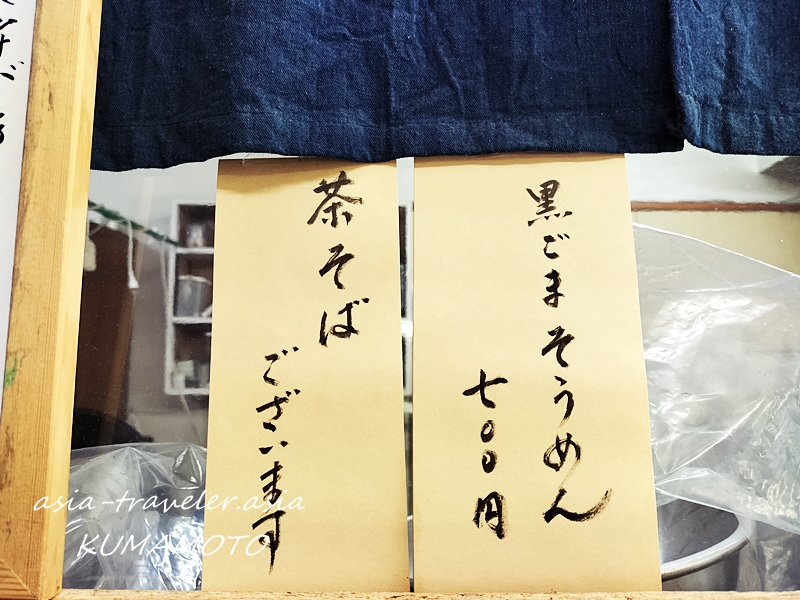 黒ごまそうめん
七〇〇円
茶そば
ございます
asia-traveler.asia
KUMAMOTO